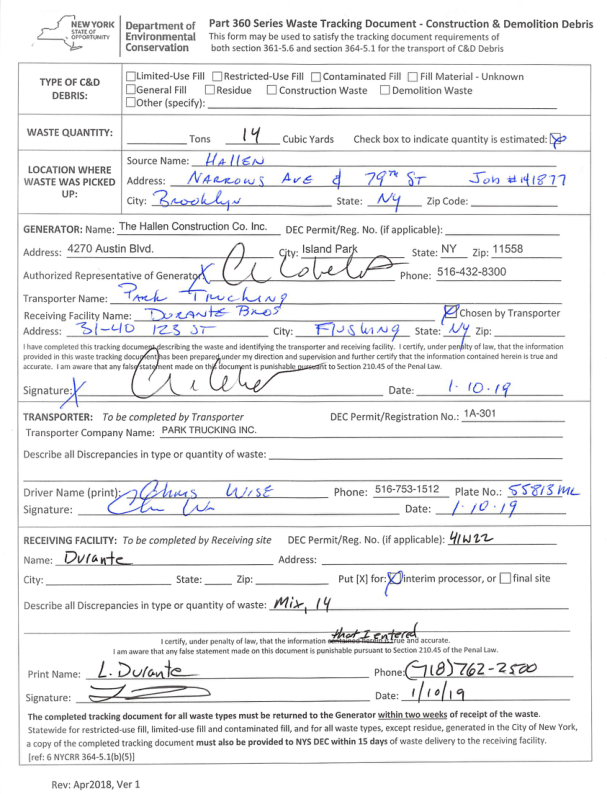 NEW YORK
STATE OF
OPPORTUNITY
Department of
Environmental
Conservation
Part 360 Series Waste Tracking Document - Construction & Demolition Debris
This form may be used to satisfy the tracking document requirements of
both section 361-5.6 and section 364-5.1 for the transport of C&D Debris
TYPE OF C&D
DEBRIS:
Limited-Use Fill Restricted-Use Fill Contaminated Fill Fill Material - Unknown
General Fill Residue Construction Waste Demolition Waste
Other (specify):
WASTE QUANTITY: Tons 14 Cubic Yards Check box to indicate quantity is estimated:
LOCATION WHERE
WASTE WAS PICKED
UP:
Source Name: HALLEN
Address: NARROWS AVE & 79TH ST Job #141877
City: Brooklyn State: NY Zip Code:
GENERATOR: Name: The Hallen Construction Co. Inc. DEC Permit/Reg. No. (if applicable):
Address: 4270 Austin Blvd. City: Island Park State: NY Zip: 11558
Authorized Representative of Generator X Phone: 516-432-8300
Transporter Name: Park Trucking
Receiving Facility Name: DURANTE BROS Chosen by Transporter
Address: 31-40 123 ST City: FLUSHING State: NY Zip:
I have completed this tracking document describing the waste and identifying the transporter and receiving facility. I certify, under penalty of law, that the information
provided in this waste tracking document has been prepared under my direction and supervision and further certify that the information contained herein is true and
accurate. I am aware that any false statement made on this document is punishable pursuant to Section 210.45 of the Penal Law.
Signature: X Date: 1-10-19
TRANSPORTER: To be completed by Transporter DEC Permit/Registration No.: 1A-301
Transporter Company Name: PARK TRUCKING INC.
Describe all Discrepancies in type or quantity of waste:
Driver Name (print): Chris WISE Phone: 516-753-1512 Plate No.: 55813ML
Signature: Date: 1-10-19
RECEIVING FACILITY: To be completed by Receiving site DEC Permit/Reg. No. (if applicable): 41W22
Name: Durante Address:
City: State: Zip: Put [X] for: interim processor, or final site
Describe all Discrepancies in type or quantity of waste: Mix, 14
that I entered
I certify, under penalty of law, that the information contained herein is true and accurate.
I am aware that any false statement made on this document is punishable pursuant to Section 210.45 of the Penal Law.
Print Name: L. Durante Phone: (718)762-2500
Signature: Date: 1/10/19
The completed tracking document for all waste types must be returned to the Generator within two weeks of receipt of the waste.
Statewide for restricted-use fill, limited-use fill and contaminated fill, and for all waste types, except residue, generated in the City of New York,
a copy of the completed tracking document must also be provided to NYS DEC within 15 days of waste delivery to the receiving facility.
[ref: 6 NYCRR 364-5.1(b)(5)]
Rev: Apr2018, Ver 1